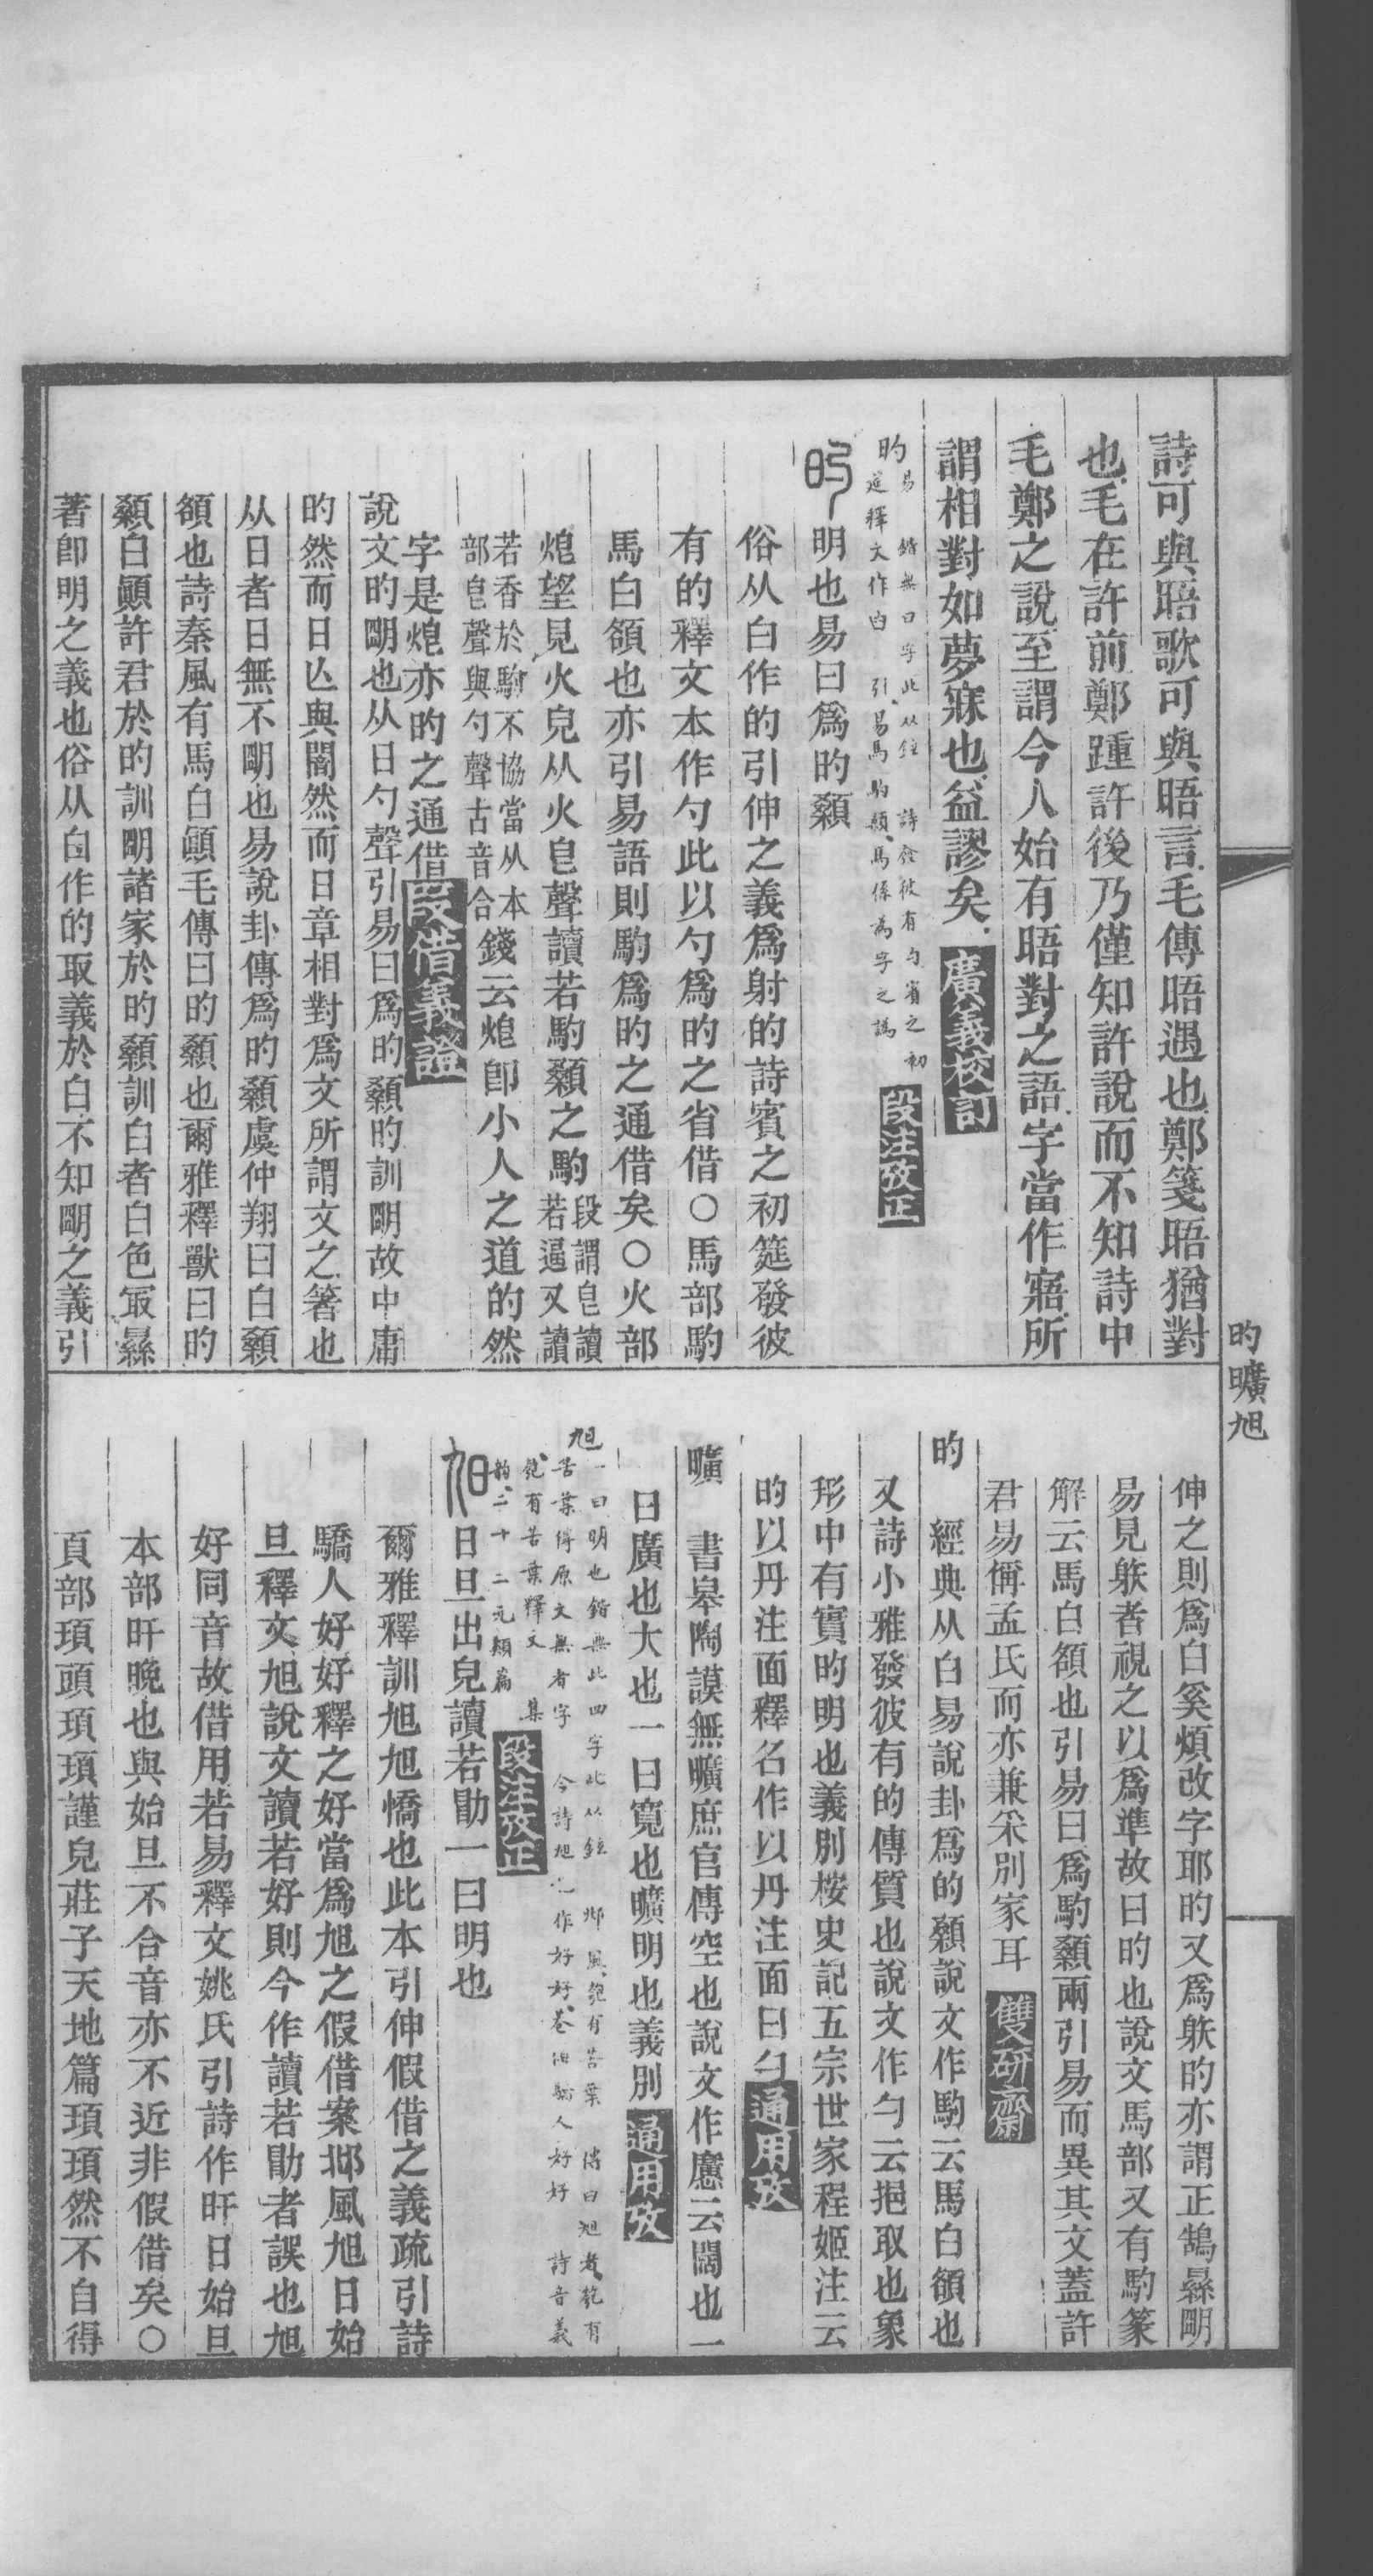 詩可與晤歌可與晤言毛傳晤遇也鄭箋晤猶對
也毛在許前鄭踵許後乃僅知許說而不知詩中
毛鄭之說至謂今人始有晤對之語字當作寤所
謂相對如夢寐也益謬矣 廣義校訂
旳 易 鍇無日字此从鉉 詩發彼有勺賓之初
筵釋文作旳 引易馬駒顙馬係為字之譌 段注攷正
旳 明也易曰爲旳顙
俗从白作的引伸之義爲射的詩賓之初筵發彼
有的釋文本作勺此以勺爲旳之省借〇馬部馰
馬白頟也亦引易語則馰爲旳之通借矣〇火部
炮望見火皃从火皀聲讀若馰顙之馰段謂皀讀
若逼又讀
若香於馰不協當从本
部皀聲與勺聲古音合 錢云炮卽小人之道的然
字是炮亦旳之通借 段借義證
說文旳朙也从日勺聲引易曰爲旳顙旳訓朙故中庸
旳然而日亾與闇然而日章相對爲文所謂文之箸也
从日者日無不朙也易說卦傳爲旳顙虞仲翔曰白顙
頟也詩秦風有馬白顚毛傳曰旳顙也爾雅釋獸曰旳
顙白顚許君於旳訓朙諸家於旳顙訓白者白色㝡㬎
著卽明之義也俗从白作的取義於白不知朙之義引
旳曠旭
伸之則爲白奚煩改字耶旳又爲䠶旳亦謂正鵠㬎朙
易見䠶者視之以爲準故曰旳也說文馬部又有馰篆
解云馬白頟也引易曰爲馰顙兩引易而異其文蓋許
君易偁孟氏而亦兼采別家耳 雙硏齋
旳 經典从白易說卦爲的顙說文作馰云馬白頟也
又詩小雅發彼有的傳質也說文作勺云挹取也象
形中有實旳明也義別桉史記五宗世家程姬注云
旳以丹注面釋名作以丹注面曰勺 通用攷
曠 書皋陶謨無曠庶官傳空也說文作懬云闊也一
曰廣也大也一曰寬也曠明也義別 通用攷
旭 一曰明也鍇無此四字此从鉉 邶風匏有苦葉 傳曰旭者匏有
苦葉傳原文無者字 今詩旭之作好好巷伯驕人好好 詩音義
匏有苦葉釋文 集
韵二十二元類篇 段注攷正
旭 日旦出皃讀若勖一曰明也
爾雅釋訓旭旭憍也此本引伸假借之義疏引詩
驕人好好釋之好當爲旭之假借案邶風旭日始
旦釋文旭說文讀若好則今作讀若勖者誤也旭
好同音故借用若易釋文姚氏引詩作旰日始旦
本部旰晚也與始旦不合音亦不近非假借矣〇
頁部頊頭頊頊謹皃莊子天地篇頊頊然不自得